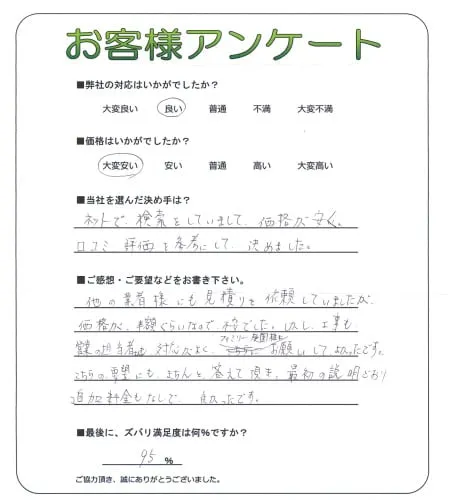 お客様アンケート
■弊社の対応はいかがでしたか？
大変良い 良い 普通 不満 大変不満
■価格はいかがでしたか？
大変安い 安い 普通 高い 大変高い
■当社を選んだ決め手は？
ネットで、検索をしていまして、価格が安く。
口コミ 評価を参考にして、決めました。
■ご感想・ご要望などをお書き下さい。
他の業者様にも見積りを依頼していましたが、
価格が、半額ぐらいなので、でした。しかし、工事も
ファミリー
の担当者も 対応がよく、お願いしてよかったです。
こちらの要望にも、きちんと、答えて頂き、最初の説明どおり
追加料金もなしで 良かったです。
■最後に、ズバリ満足度は何％ですか？
95 ％
ご協力頂き、誠にありがとうございました。